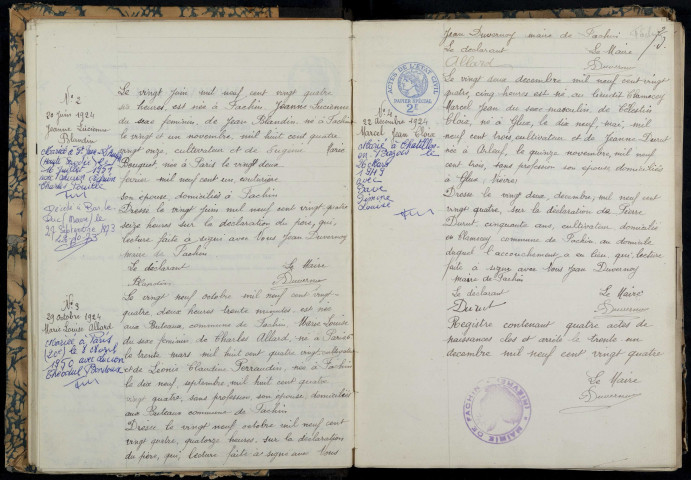 N° 2
20 Juin 1924
Jeanne Lucienne
Blandin
Mariée à
le
11 juillet 1951
avec
Charles
Décédée à Bar le
Duc (Meuse) le
27 Septembre 1973
Le vingt juin mil neuf cent vingt quatre
six heures, est née à Fachin Jeanne Lucienne
du sexe féminin, de Jean Blandin, né à Fachin
le vingt et un novembre, mil huit cent quatre
vingt onze, cultivateur et de Eugénie Marie
Bouquet née à Paris le vingt deux
février mil neuf cent un, couturière
son épouse, domiciliés à Fachin
Dressé le vingt juin mil neuf cent vingt quatre
seize heures sur la déclaration du père, qui,
lecture faite a signé avec Nous Jean Duvernoy
maire de Fachin
Le déclarant Le Maire
Blandin Duvernoy
N° 3
29 octobre 1924
Marie Louise Allard
Mariée à Paris
(20e) le 8 Avril
1950 avec Lucien
Théodule Bordoux
Le vingt neuf octobre mil neuf cent vingt-
quatre, deux heures trente minutes est née
aux Buteaux, commune de Fachin, Marie Louise
du sexe féminin de Charles Allard, né à Paris
le trente mars mil huit cent quatre vingt cultivateur
et de Léonie Claudine Perraudin, née à Fachin
le dix neuf septembre, mil huit cent quatre
vingt quatre, sans profession, son épouse, domiciliés
aux Buteaux commune de Fachin
Dressé le vingt neuf octobre mil neuf cent
vingt quatre, quatorze heures, sur la déclaration
du père, qui, lecture faite a signé avec Nous
Jean Duvernoy maire de Fachin
Le déclarant Le Maire
Allard Duvernoy
ACTES DE L'ÉTAT CIVIL
PAPIER SPÉCIAL
2F
N° 4
22 décembre 1924
Marcel Jean Cloix
Marié à Châtillon
en Bazois le
1949
avec
Simone
Louise
Le vingt deux décembre mil neuf cent vingt
quatre, cinq heures est né au Clamecy
Marcel Jean du sexe masculin, de Célestin
Cloix, né à Glux, le dix neuf, mai, mil
neuf cent trois, cultivateur et de Jeanne Durut
née à Arleuf, le quinze novembre, mil neuf
cent trois, sans profession son épouse domiciliés
à Glux, Nièvre
Dressé le vingt deux, décembre, mil neuf cent
vingt quatre, sur la déclaration de Pierre
Durut, cinquante ans, cultivateur domicilié
en Clamecy commune de Fachin, au domicile
duquel l'accouchement, a eu lieu, qui, lecture
faite a signé avec Nous Jean Duvernoy
maire de Fachin
Le déclarant Le Maire
Durut Duvernoy
Registre contenant quatre actes de
naissances clos et arrêté le trente un
décembre mil neuf cent vingt quatre
Le Maire
Duvernoy
MAIRIE DE FACHIN